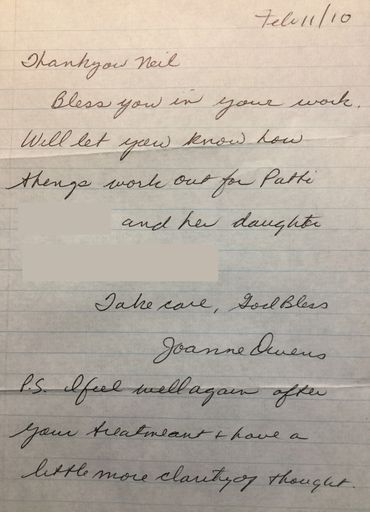 Feb 11/10
Thankyou Neil
Bless you in your work.
Will let you know how
things work out for Patti
and her daughter
Take care, God Bless
Joanne Owens
P.S. I feel well again after
your treatment & have a
little more clarity of thought.